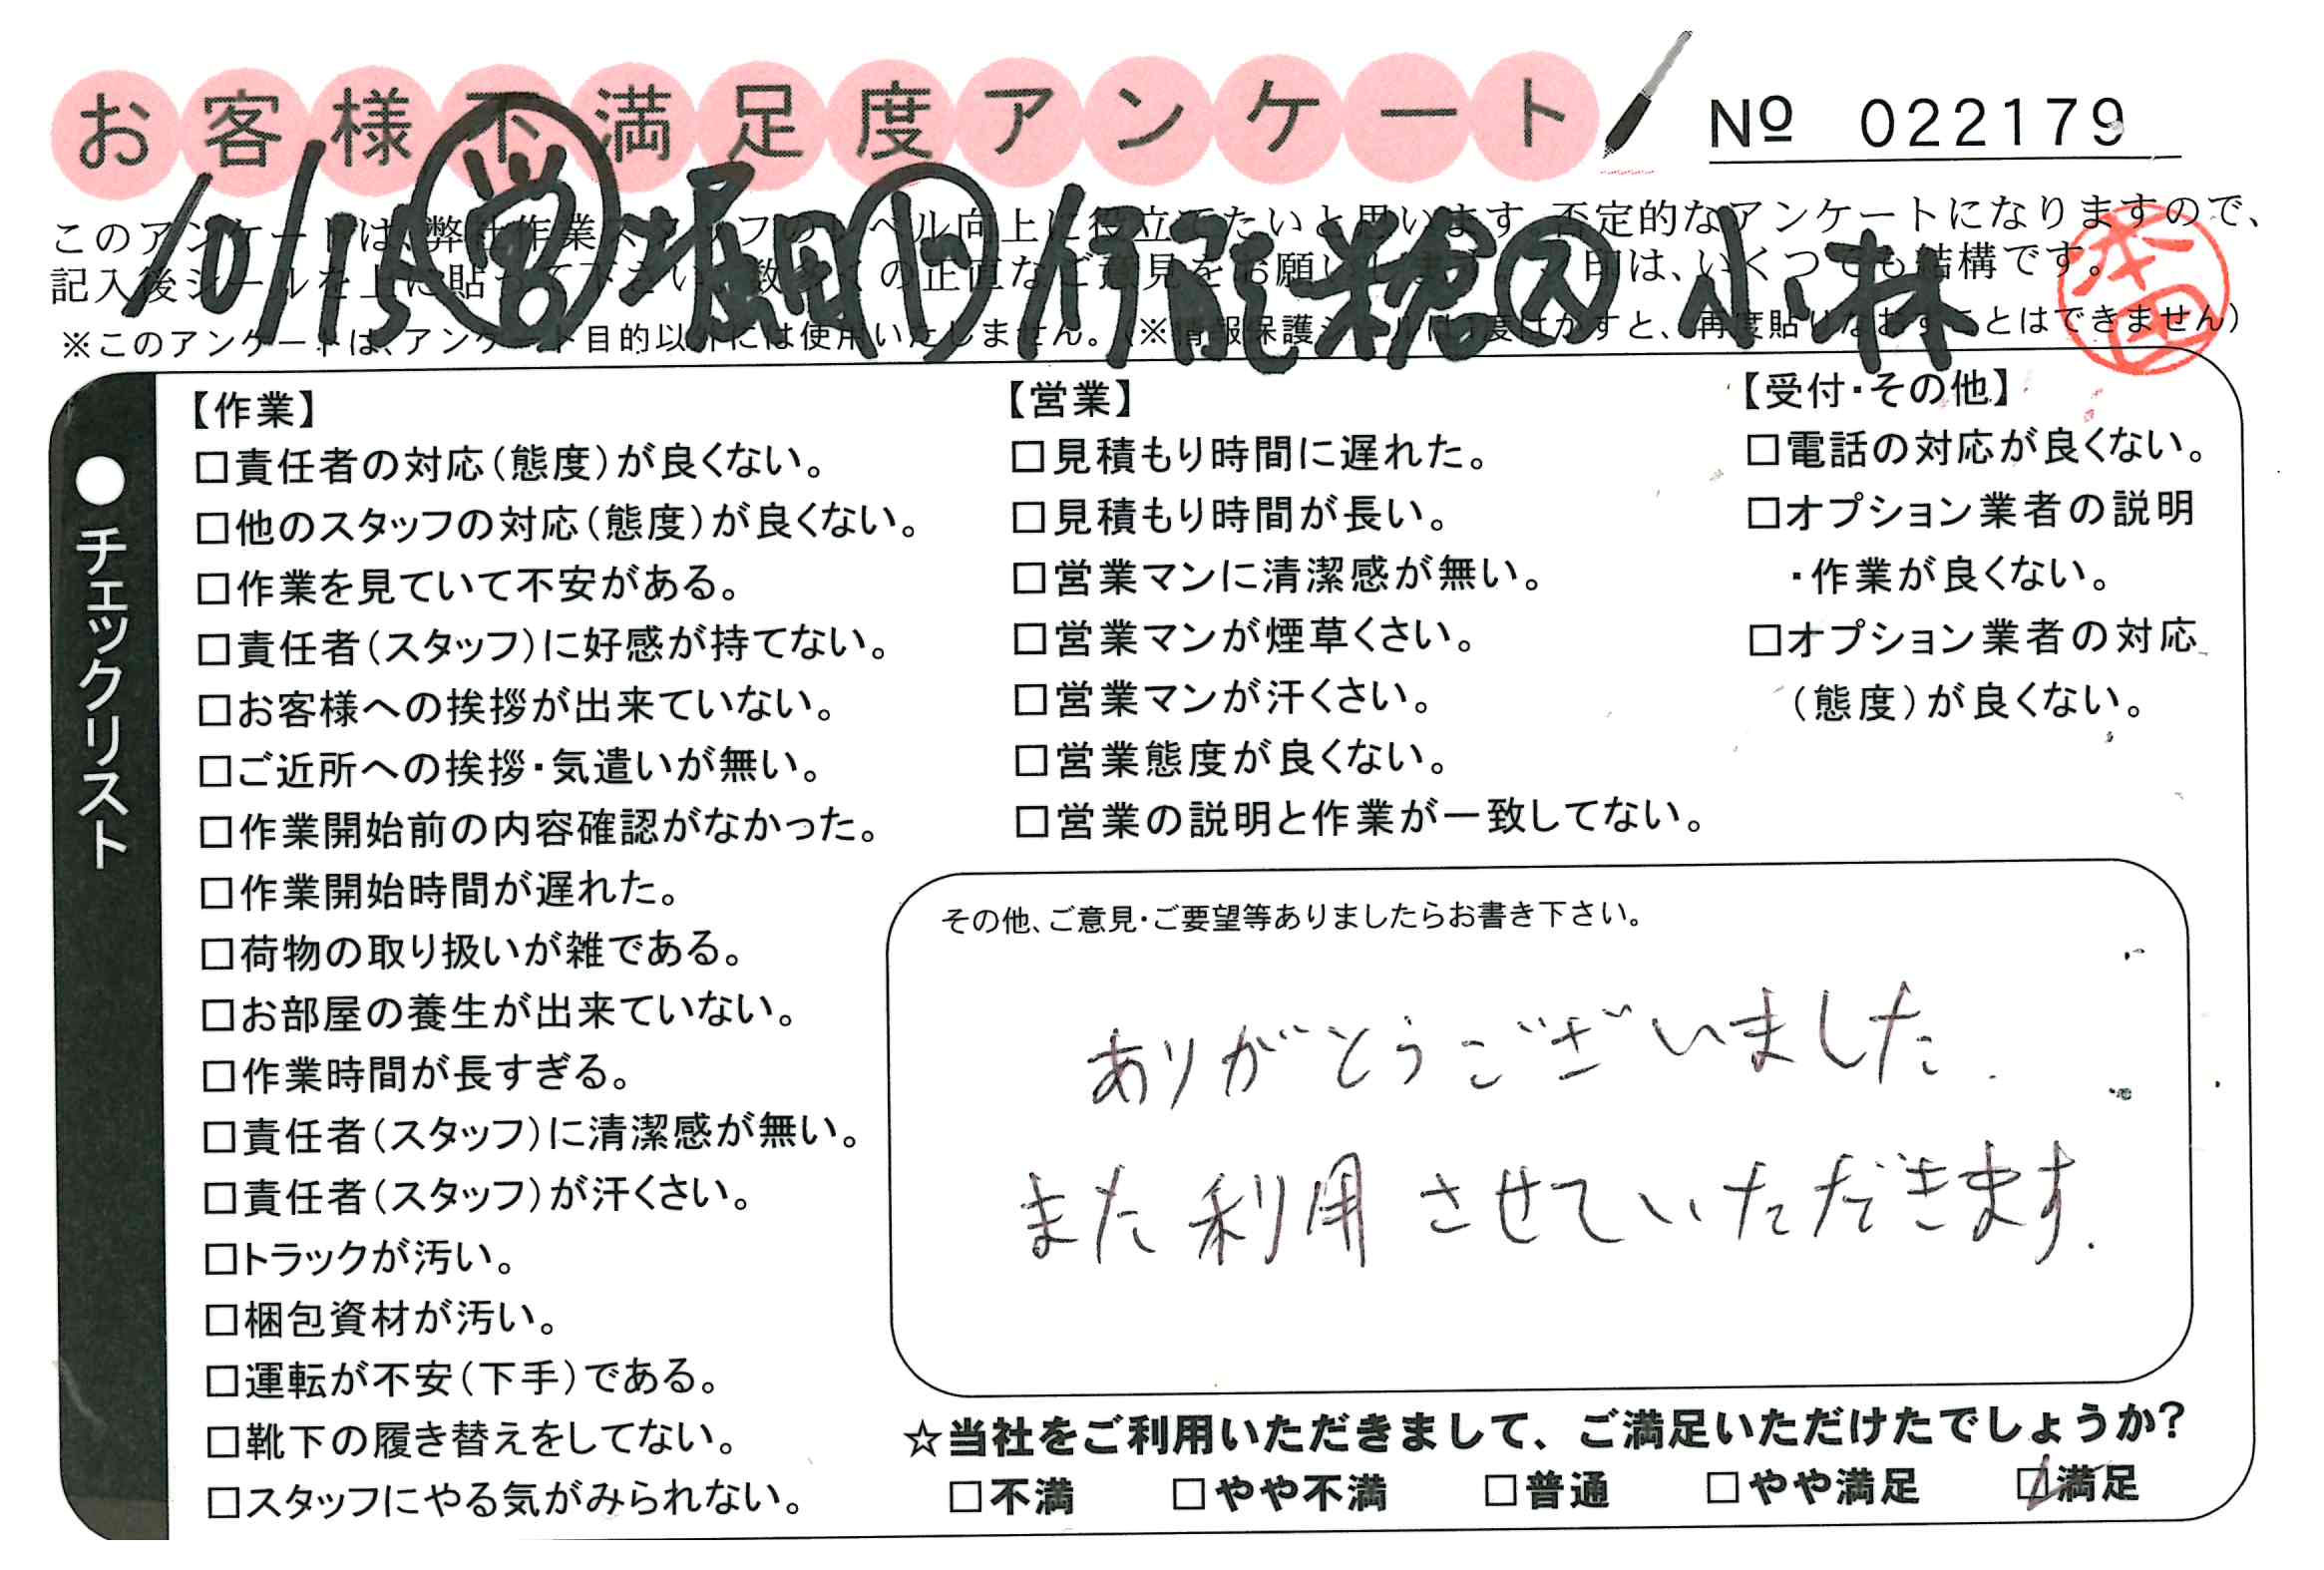 お客様不満足度アンケート
Nº 022179
10/15 営 堀田 ト 小林
このアンケートは、弊社作業スタッフのレベル向上に役立てたいと思います。不定的なアンケートになりますので、
記入後シールを上に貼って下さい。数多くの正直なご意見をお願いします。 印は、いくつでも結構です。
※このアンケートは、アンケート目的以外には使用いたしません。(※情報保護シールは1度はがすと、再度貼りなおすことはできません)
本田
●チェックリスト
【作業】
□責任者の対応(態度)が良くない。
□他のスタッフの対応(態度)が良くない。
□作業を見ていて不安がある。
□責任者(スタッフ)に好感が持てない。
□お客様への挨拶が出来ていない。
□ご近所への挨拶・気遣いが無い。
□作業開始前の内容確認がなかった。
□作業開始時間が遅れた。
□荷物の取り扱いが雑である。
□お部屋の養生が出来ていない。
□作業時間が長すぎる。
□責任者(スタッフ)に清潔感が無い。
□責任者(スタッフ)が汗くさい。
□トラックが汚い。
□梱包資材が汚い。
□運転が不安(下手)である。
□靴下の履き替えをしてない。
□スタッフにやる気がみられない。
【営業】
□見積もり時間に遅れた。
□見積もり時間が長い。
□営業マンに清潔感が無い。
□営業マンが煙草くさい。
□営業マンが汗くさい。
□営業態度が良くない。
□営業の説明と作業が一致してない。
【受付・その他】
□電話の対応が良くない。
□オプション業者の説明
・作業が良くない。
□オプション業者の対応
(態度)が良くない。
その他、ご意見・ご要望等ありましたらお書き下さい。
ありがとうございました.
また利用させていただきます.
☆当社をご利用いただきまして、ご満足いただけたでしょうか?
□不満 □やや不満 □普通 □やや満足 ☑満足